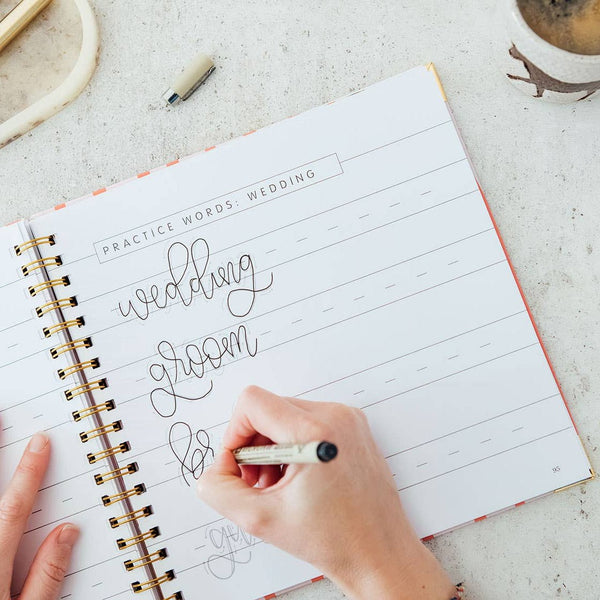 PRACTICE WORDS: WEDDING
wedding
groom
95